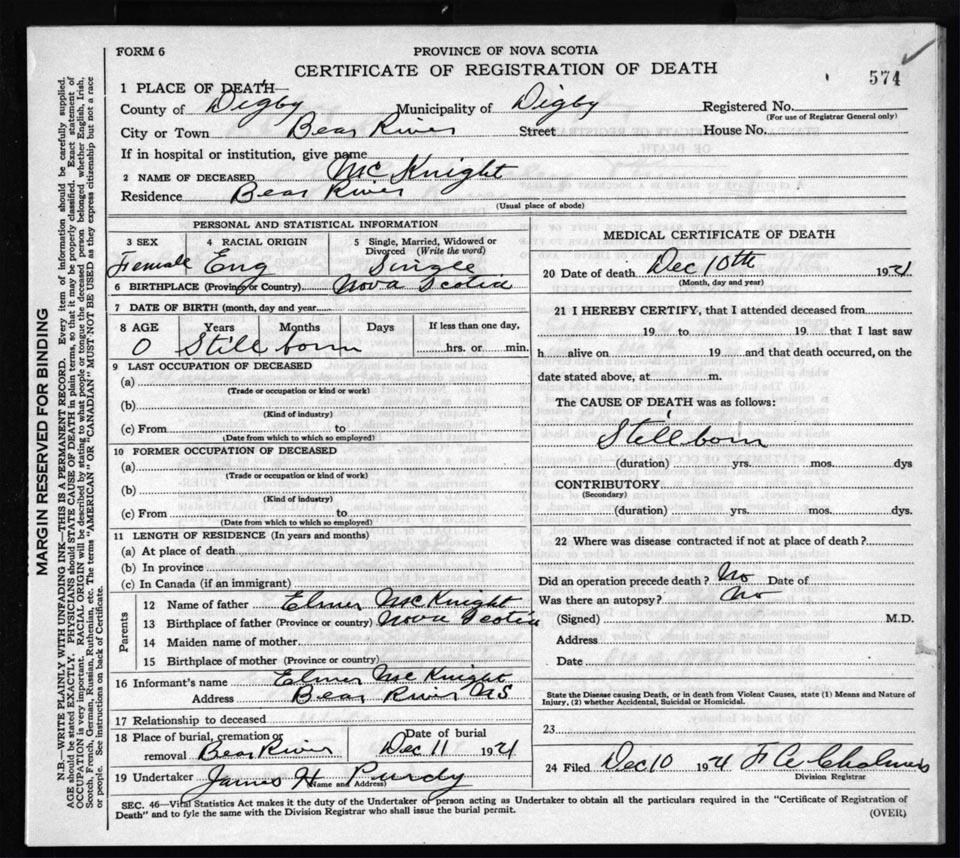 FORM 6
PROVINCE OF NOVA SCOTIA
CERTIFICATE OF REGISTRATION OF DEATH
574
1 PLACE OF DEATH
County of Digby Municipality of Digby Registered No.
(For use of Registrar General only)
City or Town Bear River Street House No.
If in hospital or institution, give name
2 NAME OF DECEASED McKnight
Residence Bear River
(Usual place of abode)
PERSONAL AND STATISTICAL INFORMATION
3 SEX 4 RACIAL ORIGIN 5 Single, Married, Widowed or Divorced (Write the word)
Female Eng Single
6 BIRTHPLACE (Province or Country) Nova Scotia
7 DATE OF BIRTH (month, day and year)
8 AGE Years Months Days If less than one day,
0 Stillborn hrs. or min.
9 LAST OCCUPATION OF DECEASED
(a)
(Trade or occupation or kind or work)
(b)
(Kind of industry)
(c) From to
(Date from which to which so employed)
10 FORMER OCCUPATION OF DECEASED
(a)
(Trade or occupation or kind or work)
(b)
(Kind of industry)
(c) From to
(Date from which to which so employed)
11 LENGTH OF RESIDENCE (In years and months)
(a) At place of death
(b) In province
(c) In Canada (if an immigrant)
Parents
12 Name of father Elmer McKnight
13 Birthplace of father (Province or country) Nova Scotia
14 Maiden name of mother
15 Birthplace of mother (Province or country)
16 Informant's name Elmer McKnight
Address Bear River NS
17 Relationship to deceased
18 Place of burial, cremation or removal Bear River Date of burial Dec 11 1921
19 Undertaker James H Purdy
(Name and Address)
MEDICAL CERTIFICATE OF DEATH
20 Date of death Dec 10th 1921
(Month, day and year)
21 I HEREBY CERTIFY, that I attended deceased from
19 to 19 that I last saw
h alive on 19 and that death occurred, on the
date stated above, at m.
The CAUSE OF DEATH was as follows:
Stillborn
(duration) yrs. mos. dys
CONTRIBUTORY
(Secondary)
(duration) yrs. mos. dys.
22 Where was disease contracted if not at place of death?
Did an operation precede death? No Date of
Was there an autopsy? No
(Signed) M.D.
Address
Date
State the Disease causing Death, or in death from Violent Causes, state (1) Means and Nature of
Injury, (2) whether Accidental, Suicidal or Homicidal.
23
24 Filed Dec 10 1921 F C Chalmers
Division Registrar
SEC. 46—Vital Statistics Act makes it the duty of the Undertaker or person acting as Undertaker to obtain all the particulars required in the "Certificate of Registration of
Death" and to fyle the same with the Division Registrar who shall issue the burial permit.
(OVER)
MARGIN RESERVED FOR BINDING
N.B.—WRITE PLAINLY WITH UNFADING INK—THIS IS A PERMANENT RECORD. Every item of information should be carefully supplied.
AGE should be stated EXACTLY. PHYSICIANS should STATE CAUSE OF DEATH in plain terms, so that it may be properly classified. Exact statement of
OCCUPATION is very important. RACIAL ORIGIN will be described by stating to what people or tongue the deceased person belonged whether English, Irish,
Scotch, French, German, Russian, Ruthenian, etc. The terms "AMERICAN" OR "CANADIAN" MUST NOT BE USED as they express citizenship but not a race
or people. See instructions on back of Certificate.